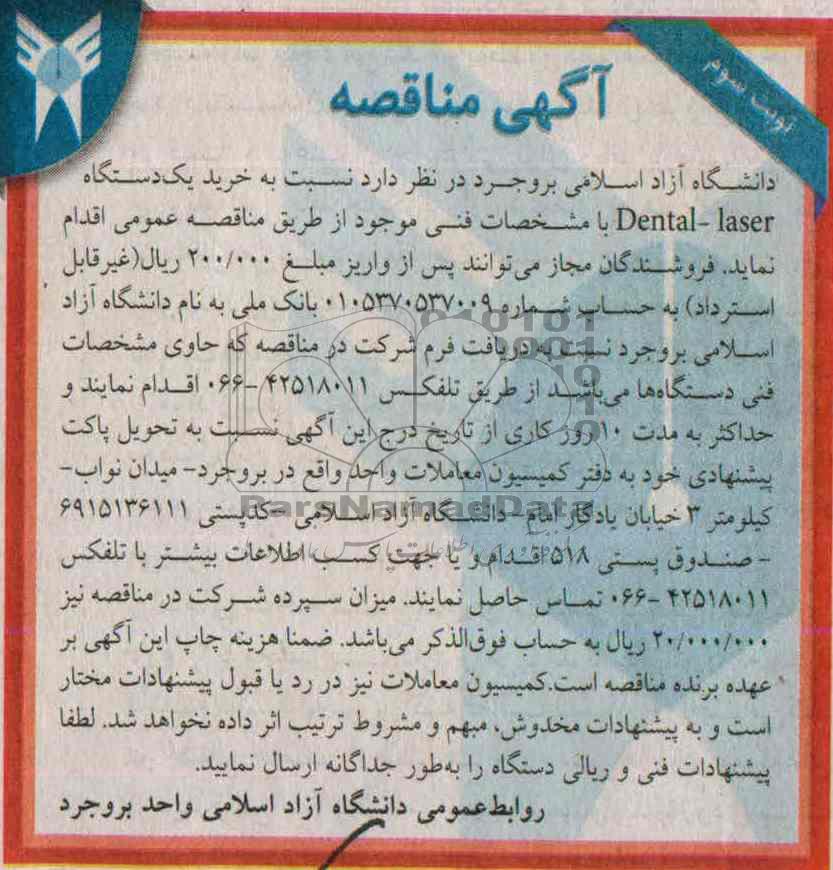 نوبت سوم
آگهی مناقصه
دانشگاه آزاد اسلامی بروجرد در نظر دارد نسبت به خرید یک‌دستگاه
Dental- laser با مشخصات فنی موجود از طریق مناقصه عمومی اقدام
نماید. فروشندگان مجاز می‌توانند پس از واریز مبلغ ۲۰۰/۰۰۰ ریال(غیرقابل
استرداد) به حساب شماره ۰۱۰۵۳۷۰۵۳۷۰۰۹ بانک ملی به نام دانشگاه آزاد
اسلامی بروجرد نسبت به دریافت فرم شرکت در مناقصه که حاوی مشخصات
فنی دستگاه‌ها می‌باشد از طریق تلفکس ۴۲۵۱۸۰۱۱ -۰۶۶ اقدام نمایند و
حداکثر به مدت ۱۰ روز کاری از تاریخ درج این آگهی نسبت به تحویل پاکت
پیشنهادی خود به دفتر کمیسیون معاملات واحد واقع در بروجرد- میدان نواب-
کیلومتر ۳ خیابان یادگار امام- دانشگاه آزاد اسلامی -کدپستی ۶۹۱۵۱۳۶۱۱۱
- صندوق پستی ۵۱۸ اقدام و یا جهت کسب اطلاعات بیشتر با تلفکس
۴۲۵۱۸۰۱۱ -۰۶۶ تماس حاصل نمایند. میزان سپرده شرکت در مناقصه نیز
۲۰/۰۰۰/۰۰۰ ریال به حساب فوق‌الذکر می‌باشد. ضمنا هزینه چاپ این آگهی بر
عهده برنده مناقصه است.کمیسیون معاملات نیز در رد یا قبول پیشنهادات مختار
است و به پیشنهادات مخدوش، مبهم و مشروط ترتیب اثر داده نخواهد شد. لطفا
پیشنهادات فنی و ریالی دستگاه را به‌طور جداگانه ارسال نمایید.
روابط‌عمومی دانشگاه آزاد اسلامی واحد بروجرد
ParsNamadData